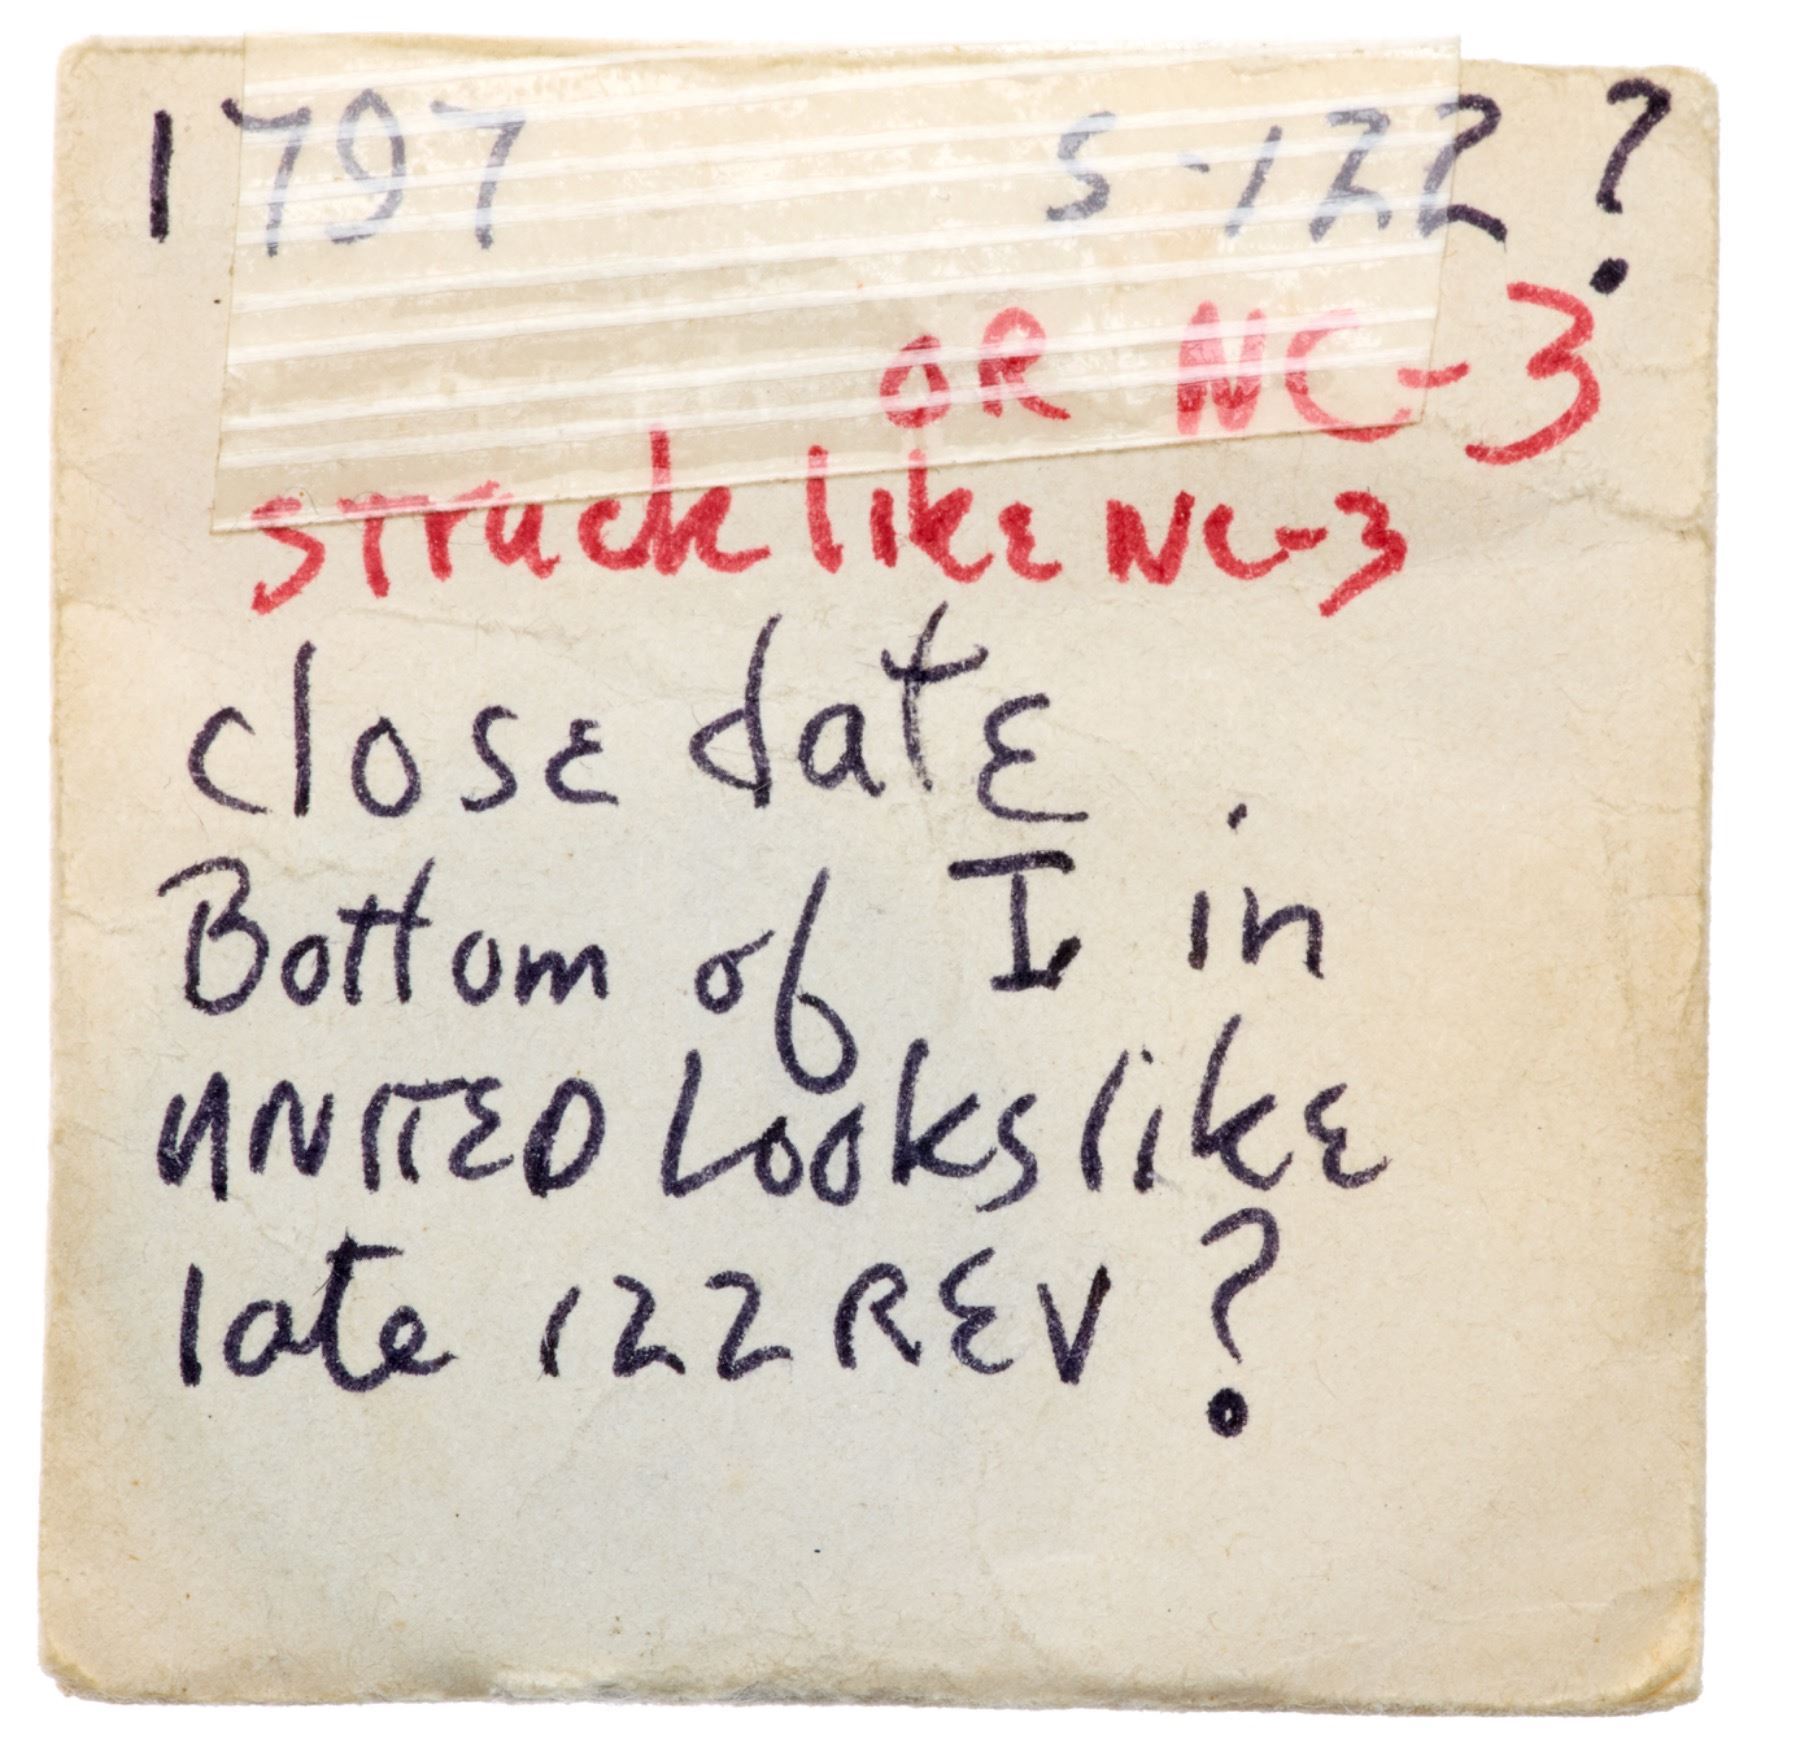 1797 S-122?
OR NC-3
struck like NC-3
close date
Bottom of I in
UNITED Looks like
late 122 REV?